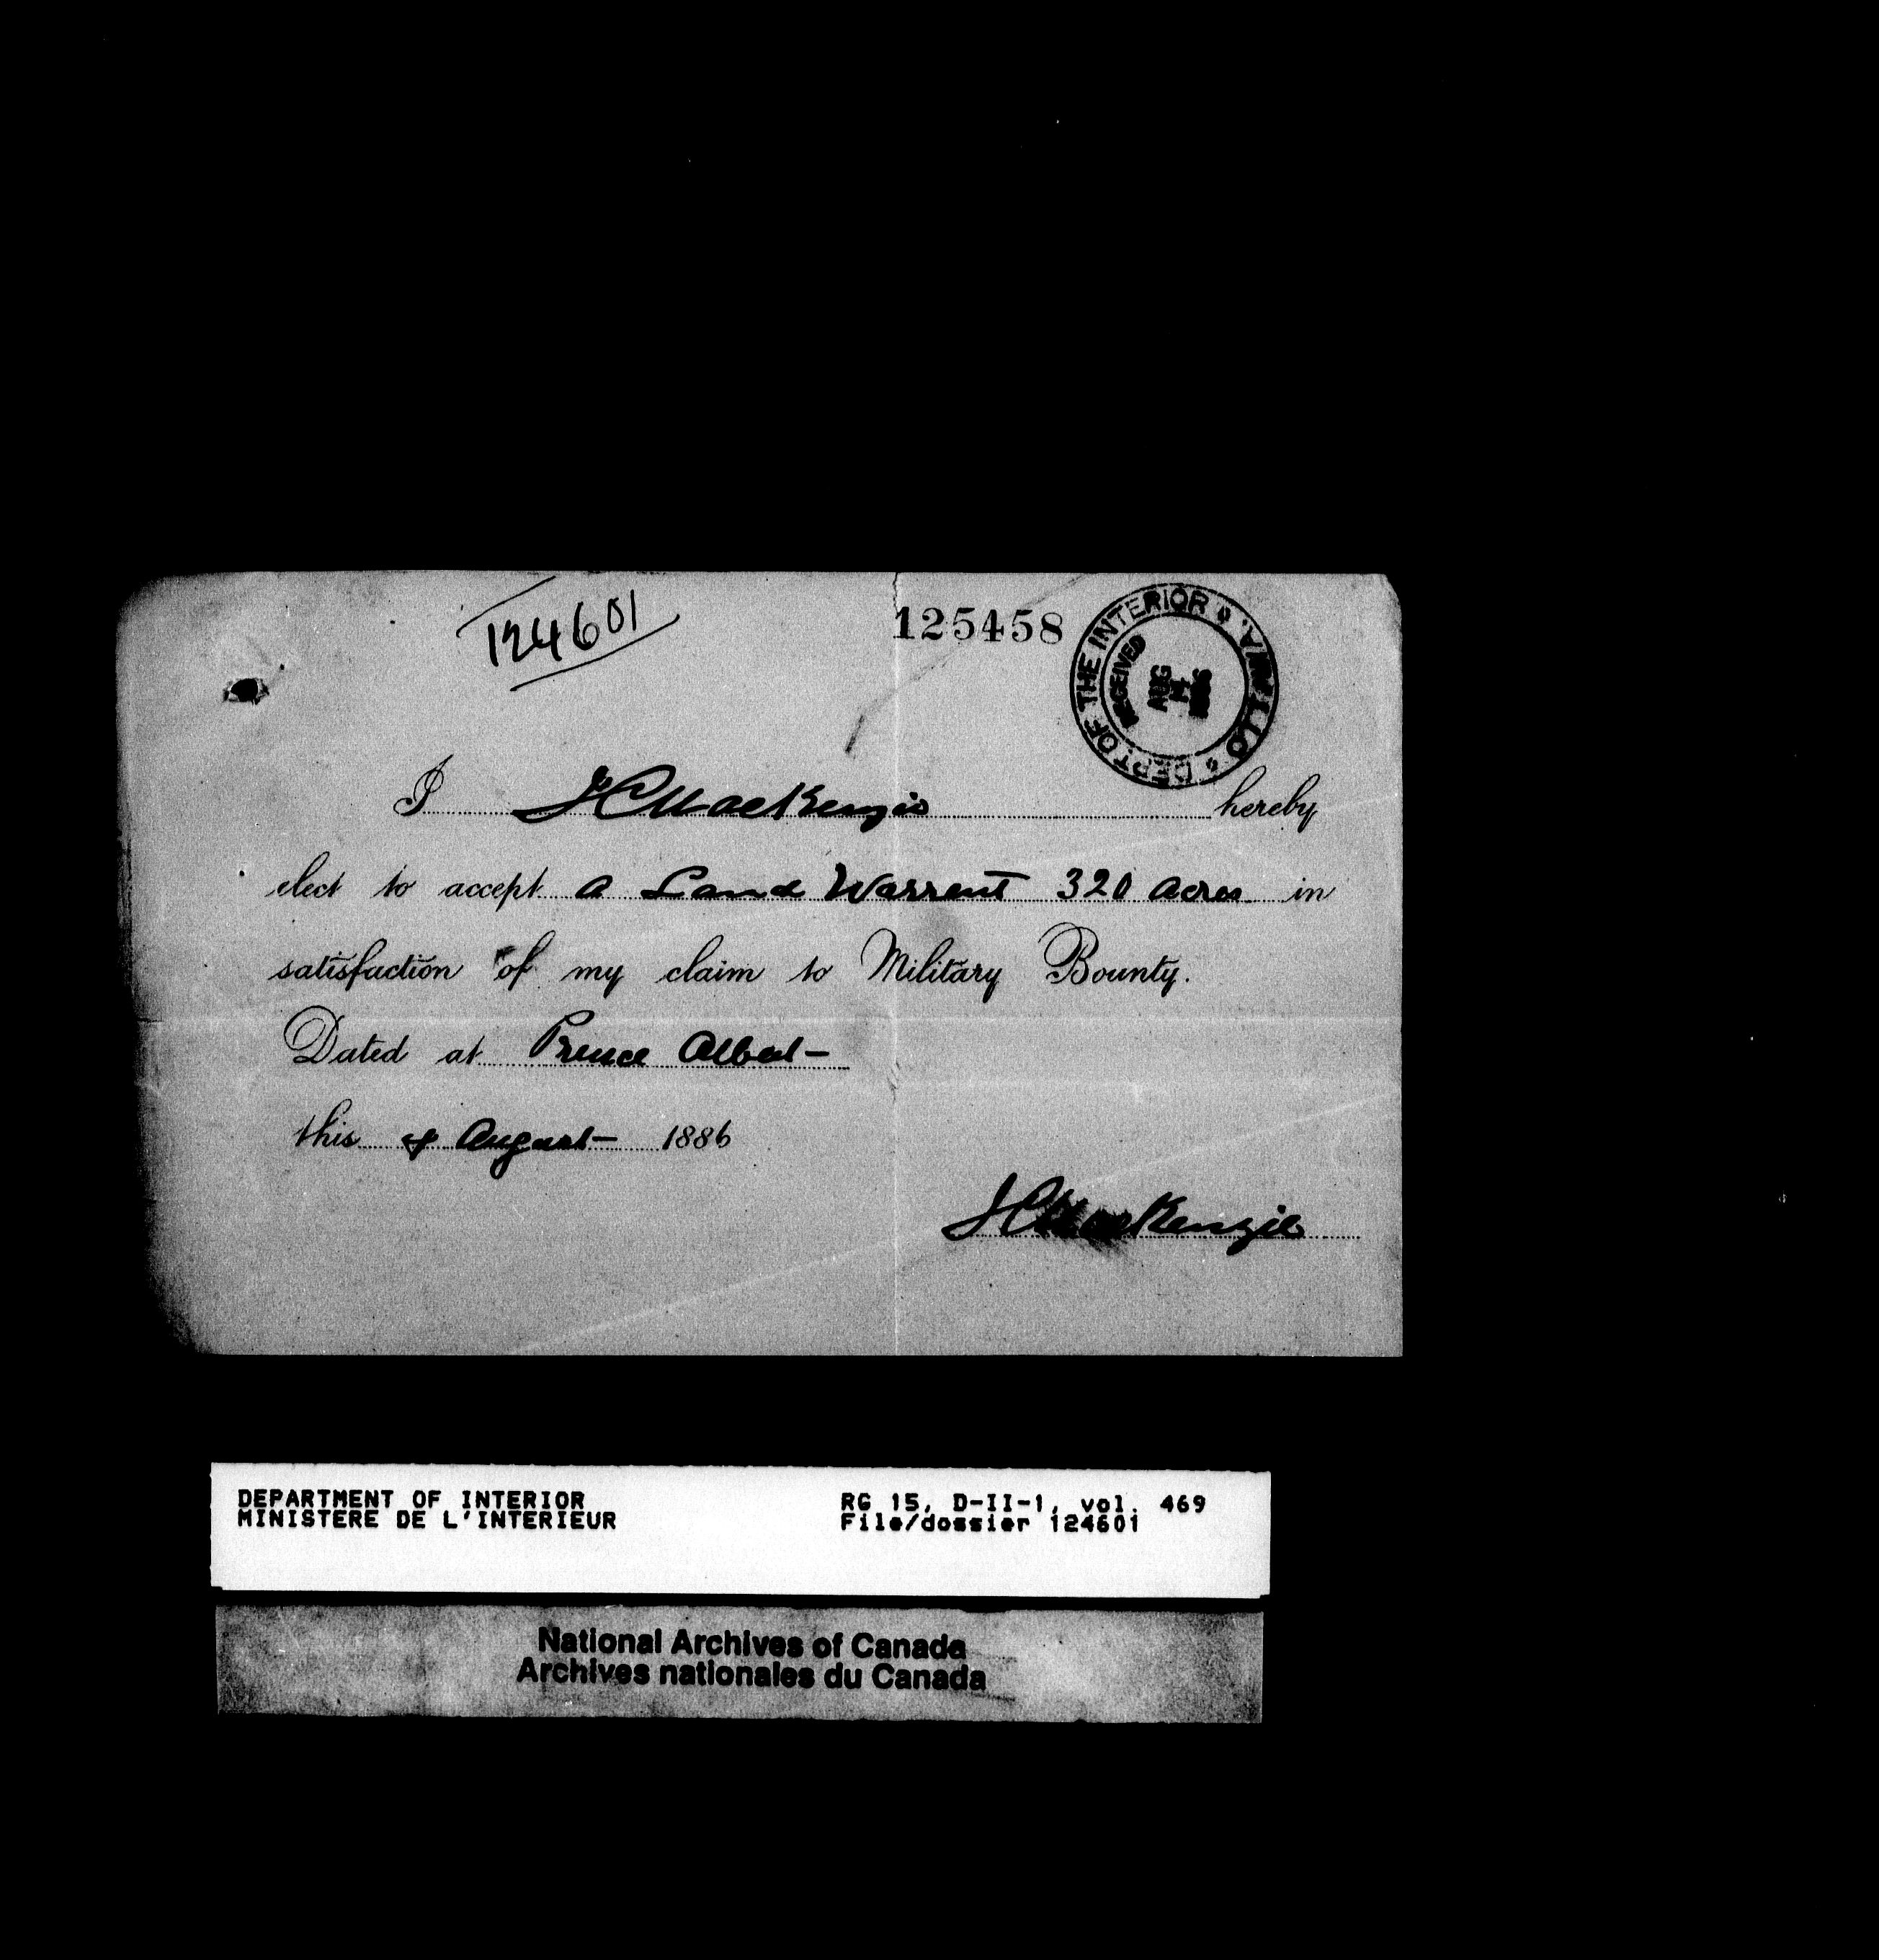 124601
125458
DEPT. OF THE INTERIOR OTTAWA.
RECEIVED
AUG
1886
I HCMacKenzie hereby
elect to accept a Land Warrent 320 acres in
satisfaction of my claim to Military Bounty.
Dated at Prince Albert-
this August- 1886
HCMacKenzie
DEPARTMENT OF INTERIOR RG 15, D-II-1, vol. 469
MINISTERE DE L'INTERIEUR File/dossier 124601
National Archives of Canada
Archives nationales du Canada